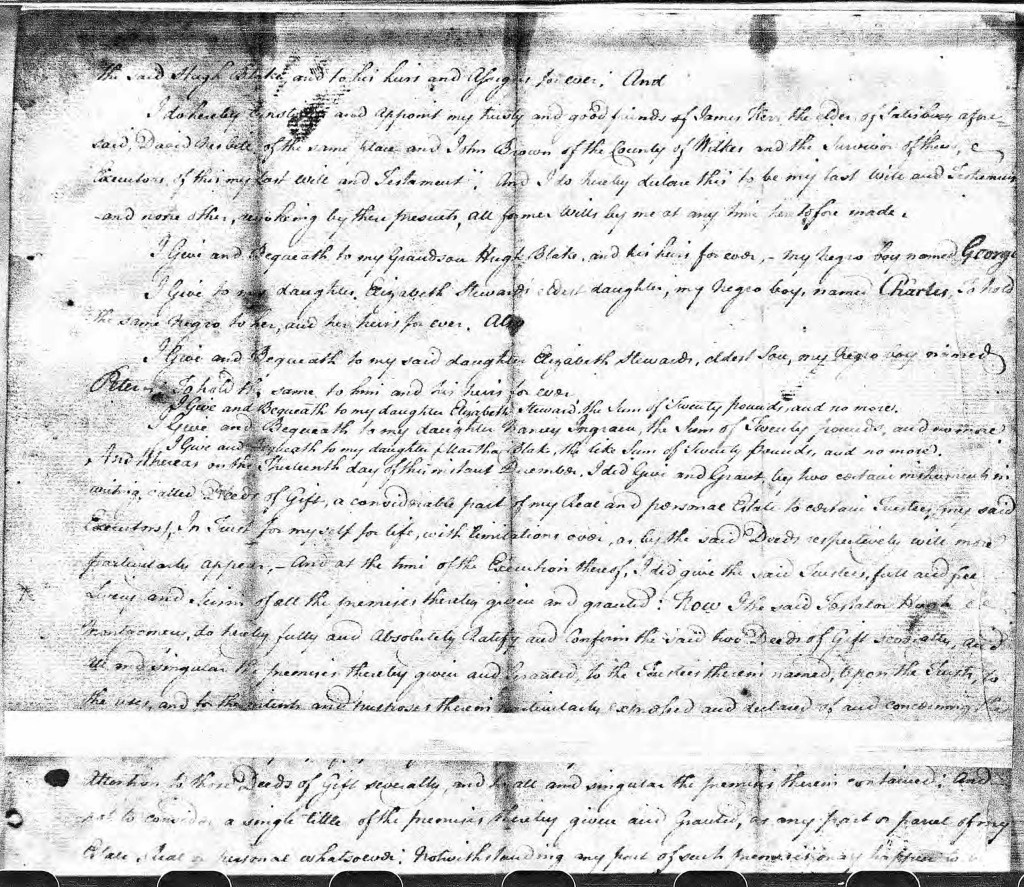 the said Hugh Blake, and to his heirs and assigns for ever; And
I do hereby Constitute and appoint my trusty and good friends of James Kerr the elder, of Salisbury afore-
said, David Nesbitt of the same place and John Brown of the County of Wilkes and the Survivor of them,
Executors of this my last will and Testament; And I do hereby declare this to be my last will and Testament
and none other, revoking by these presents, all former Wills by me at any time heretofore made.
I Give and Bequeath to my Grandson Hugh Blake, and his heirs for ever, - my Negro boy named George
I Give to my daughter, Elizabeth Stewards eldest daughter, my Negro boy, named Charles, To hold
the same Negro to her, and her heirs for ever. Also
I Give and Bequeath to my said daughter Elizabeth Stewards, eldest Son, my Negro boy named
Peter To hold the same to him and his heirs for ever
I Give and Bequeath to my daughter Elizabeth Steward, the Sum of Twenty pounds, and no more.
I Give and Bequeath to my daughter Nancy Ingram, the Sum of Twenty pounds, and no more
I Give and Bequeath to my daughter Martha Blake, the like Sum of Twenty pounds, and no more.
And Whereas on the day of this instant December, I did Give and Grant, by two certain instruments in
writing, called Deeds of Gift, a considerable part of my Real and personal Estate to certain Trustees, my said
Executors, In Trust for myself for life, with limitations over, as by the said Deeds respectively will more
particularly appear, - And at the time of the Execution thereof, I did give the said Trustees, full and free
Livery and Seisin of all the premises thereby given and granted: Now I the said Testator Hugh
Montgomery, do hereby fully and absolutely Ratify and Confirm the said two Deeds of Gift severally, and
all and singular the premises thereby given and Granted, to the Trustees therein named, Upon the Trusts, to
the uses, and for the intents and purposes therein particularly expressed and declared of and concerning
Attention to those Deeds of Gift severally, and to all and singular the premises therein contained; And
not to consider a single tittle of the premises thereby given and Granted, as any part or parcel of my
Estate Real or personal whatsoever; Notwithstanding any part of such premises may happen to